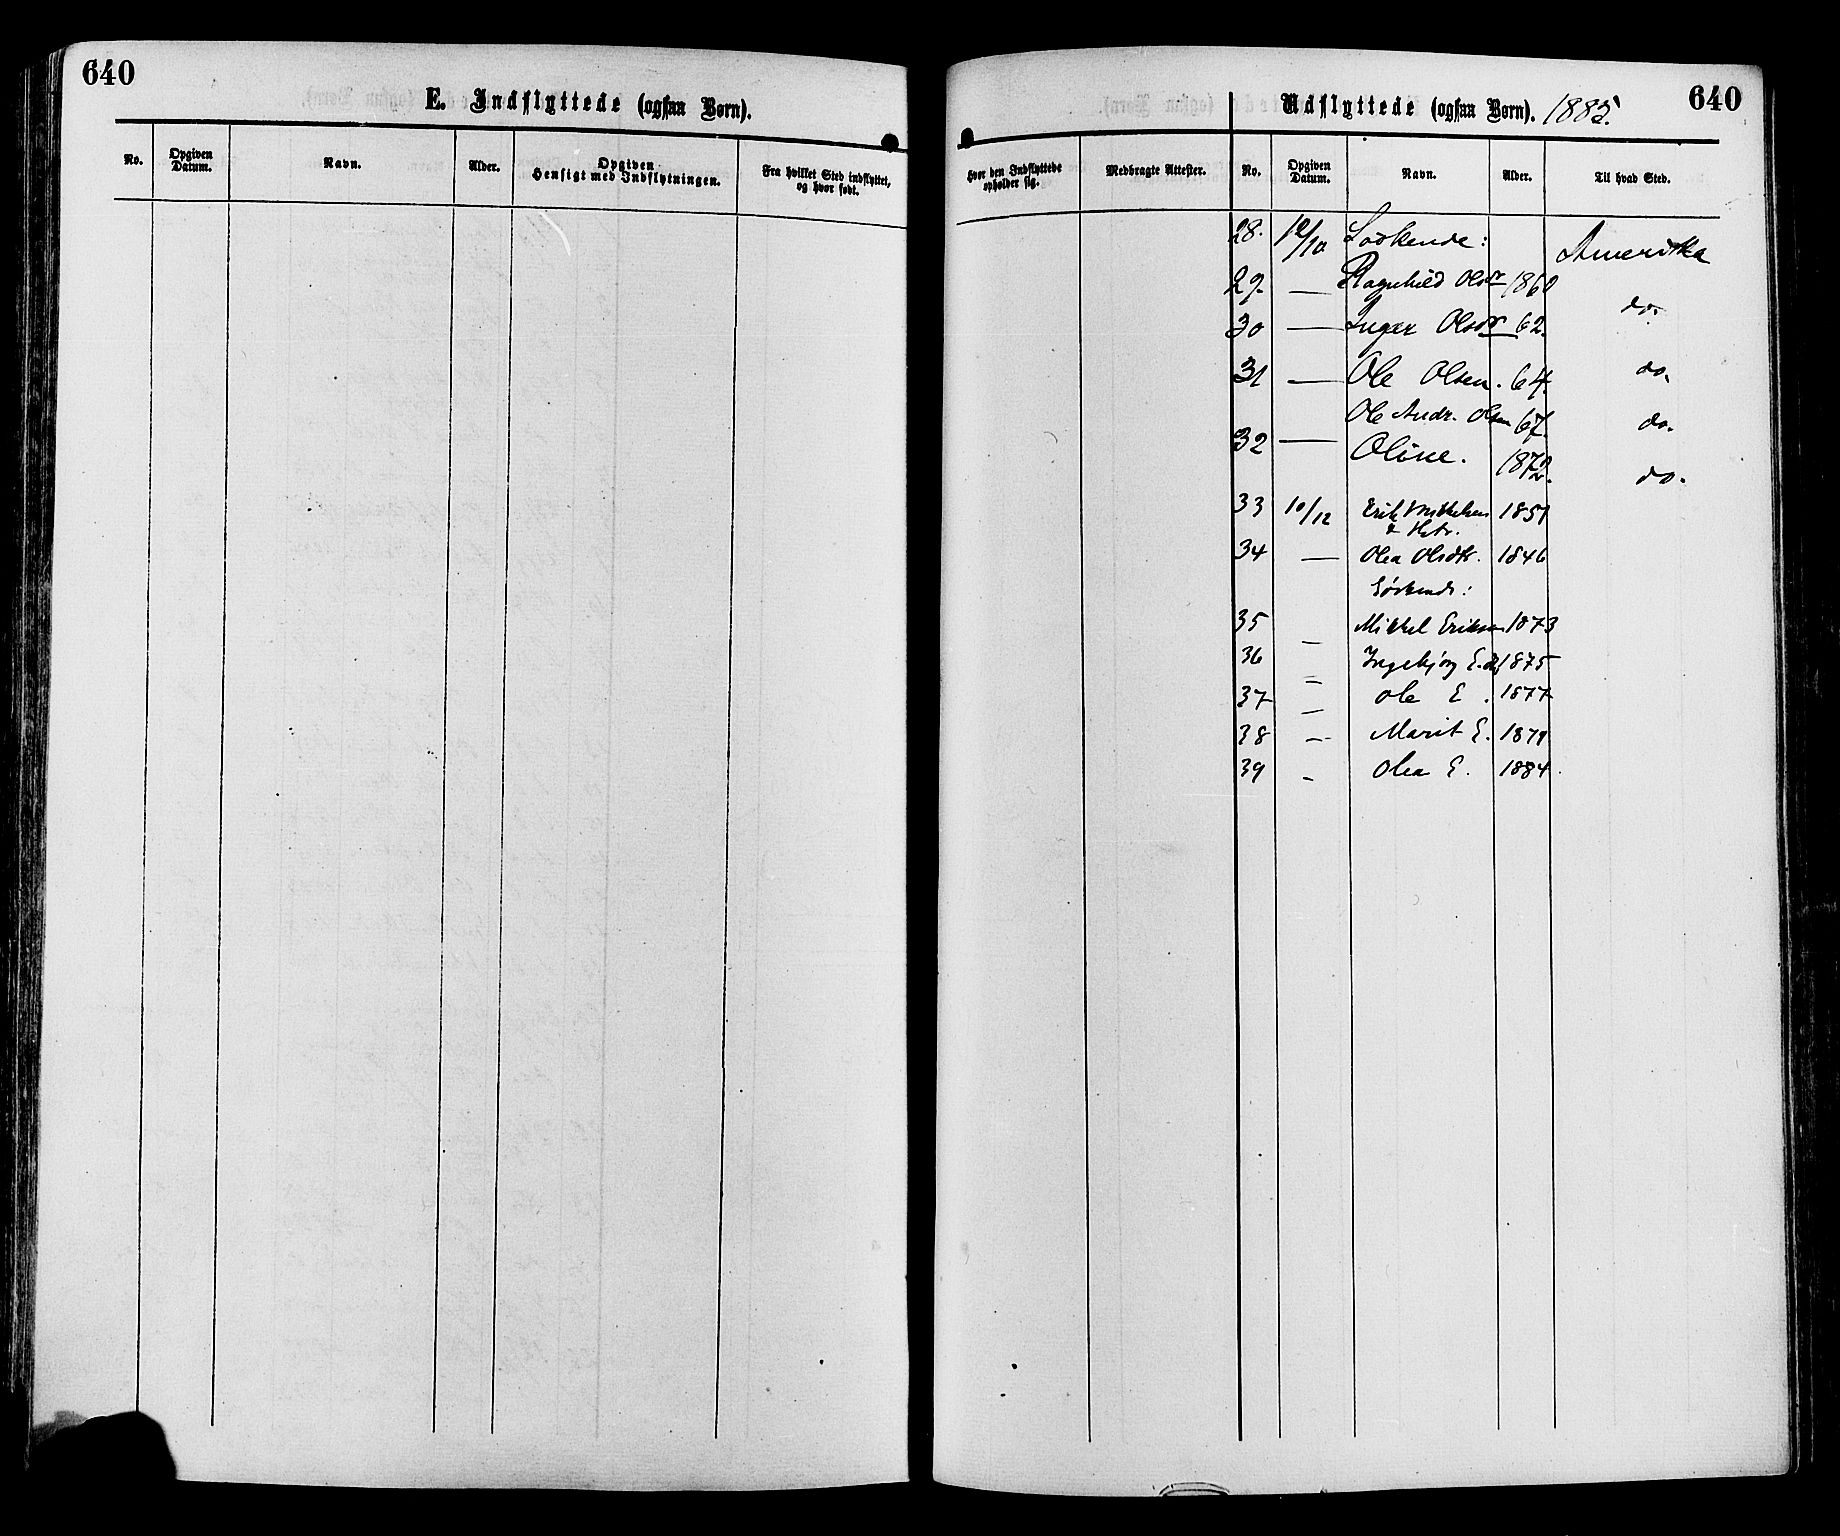 640
E. Indflyttede (ogsaa Børn).
No.
Opgiven Datum.
Navn.
Alder.
Opgiven Hensigt med Indflytningen.
Fra hvilket Sted indflyttet, og hvor født.
640
Udflyttede (ogsaa Børn). 1885.
Hvor den Indflyttede opholder sig.
Medbragte Attester.
No.
Opgiven Datum.
Navn.
Alder.
Til hvad Sted.
28. 12/10 Södkende: Amerika
29. — Ragnhild Olsdr 1860 do.
30 — Inger Olsdr 62.
31 — Ole Olsen. 64. do.
Ole Andr. Olsen 67. do.
32 — Oline. 1872. do.
33 10/12 Erik Mikkelsen 1851
& Hstr.
34 — Olea Olsdtr. 1846
Söskende:
35 — Mikkel Eriksen 1873
36 — Ingebjørg E.dtr 1875
37 — Ole E. 1877
38 — Marit E. 1879
39 - Olea E. 1884.